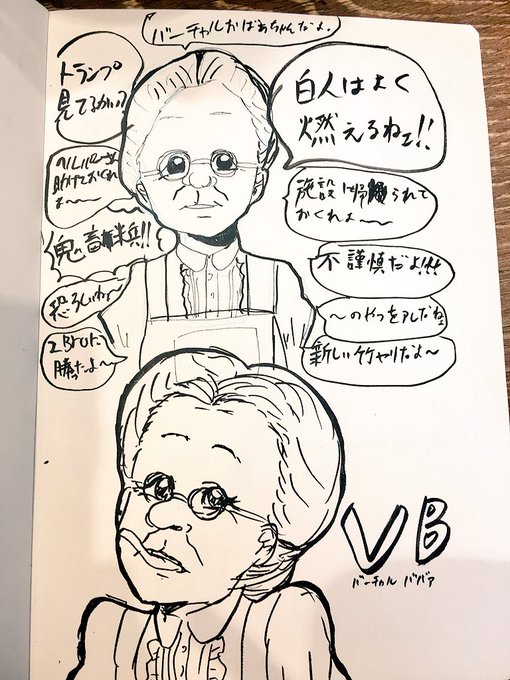 バーチャルおばあちゃんだよ。
トランプ
見てるかい?
白人はよく
燃えるねェ!!
助けておくれ
よ〜〜
施設に帰られて
おくれよ〜〜
畜米兵!!
不謹慎だよ!!
恐ろしいわよ〜
〜のやつをアレだねェ
2Broに
勝ったよ〜
新しい竹ヤリだよ〜
VB
バーチャル ババァ